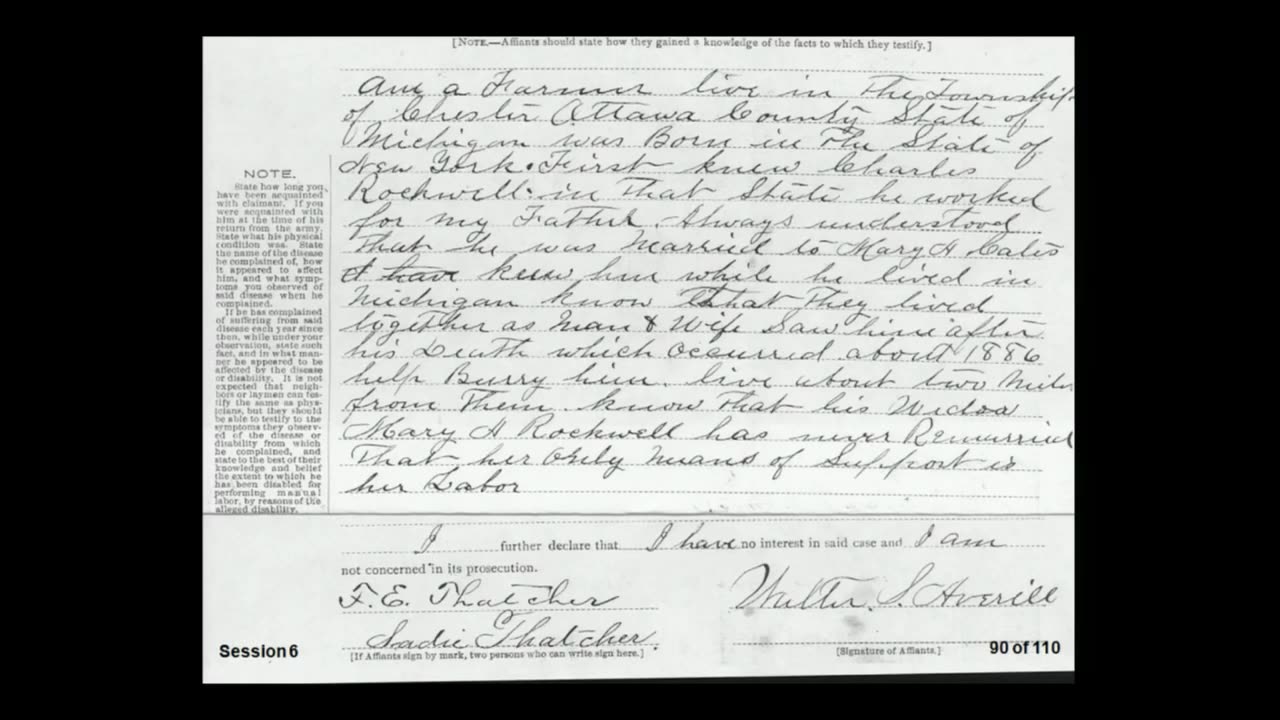 [NOTE.—Affiants should state how they gained a knowledge of the facts to which they testify.]
Am a Farmer live in The Township
of Chester Ottawa County State of
Michigan was Born in The State of
New York. First knew Charles
Rockwell in That State he worked
for my Father. Always understood
That he was Married to Mary H Cates
I have knew him while he lived in
Michigan know That They lived
together as Man & Wife Saw him after
his Death which occurred about 1886
help Burry him. live about two Miles
from Them. know That his Widow
Mary H Rockwell has never Remarried
That her Only Means of Support is
her Labor
NOTE.
State how long you
have been acquainted
with claimant. If you
were acquainted with
him at the time of his
return from the army.
State what his physical
condition was. State
the name of the disease
he complained of, how
it appeared to affect
him, and what symp-
toms you observed of
said disease when he
complained.
If he has complained
of suffering from said
disease each year since
then, while under your
observation, state such
fact, and in what man-
ner he appeared to be
affected by the disease
or disability. It is not
expected that neigh-
bors or laymen can tes-
tify the same as physi-
cians, but they should
be able to testify to the
symptoms they observ-
ed of the disease or
disability from which
he complained, and
state to the best of their
knowledge and belief
the extent to which he
has been disabled for
performing manual
labor, by reasons of the
alleged disability.
I further declare that I have no interest in said case and I am
not concerned in its prosecution.
F. E. Thatcher
Walter S. Averill
Sadie Thatcher.
[If Affiants sign by mark, two persons who can write sign here.]
[Signature of Affiants.]
Session 6
90 of 110